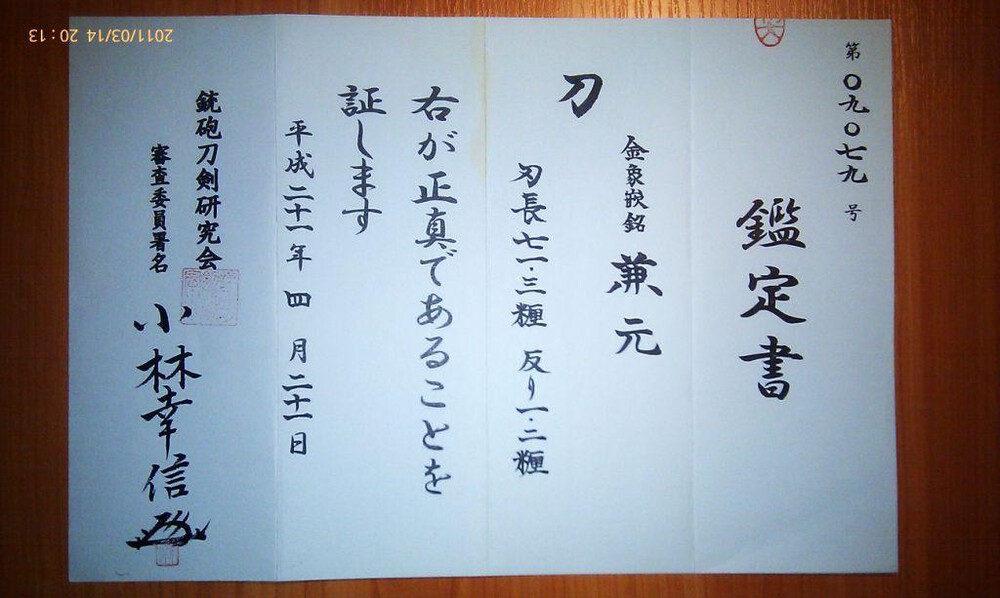 第〇九〇七九号
鑑定書
金象嵌銘 兼元
刀
刃長七一・三糎 反り一・二糎
右が正真であることを
証します
平成二十一年 四月二十一日
銃砲刀剣研究会
審査委員署名 小林幸信
2011/03/14 20:13